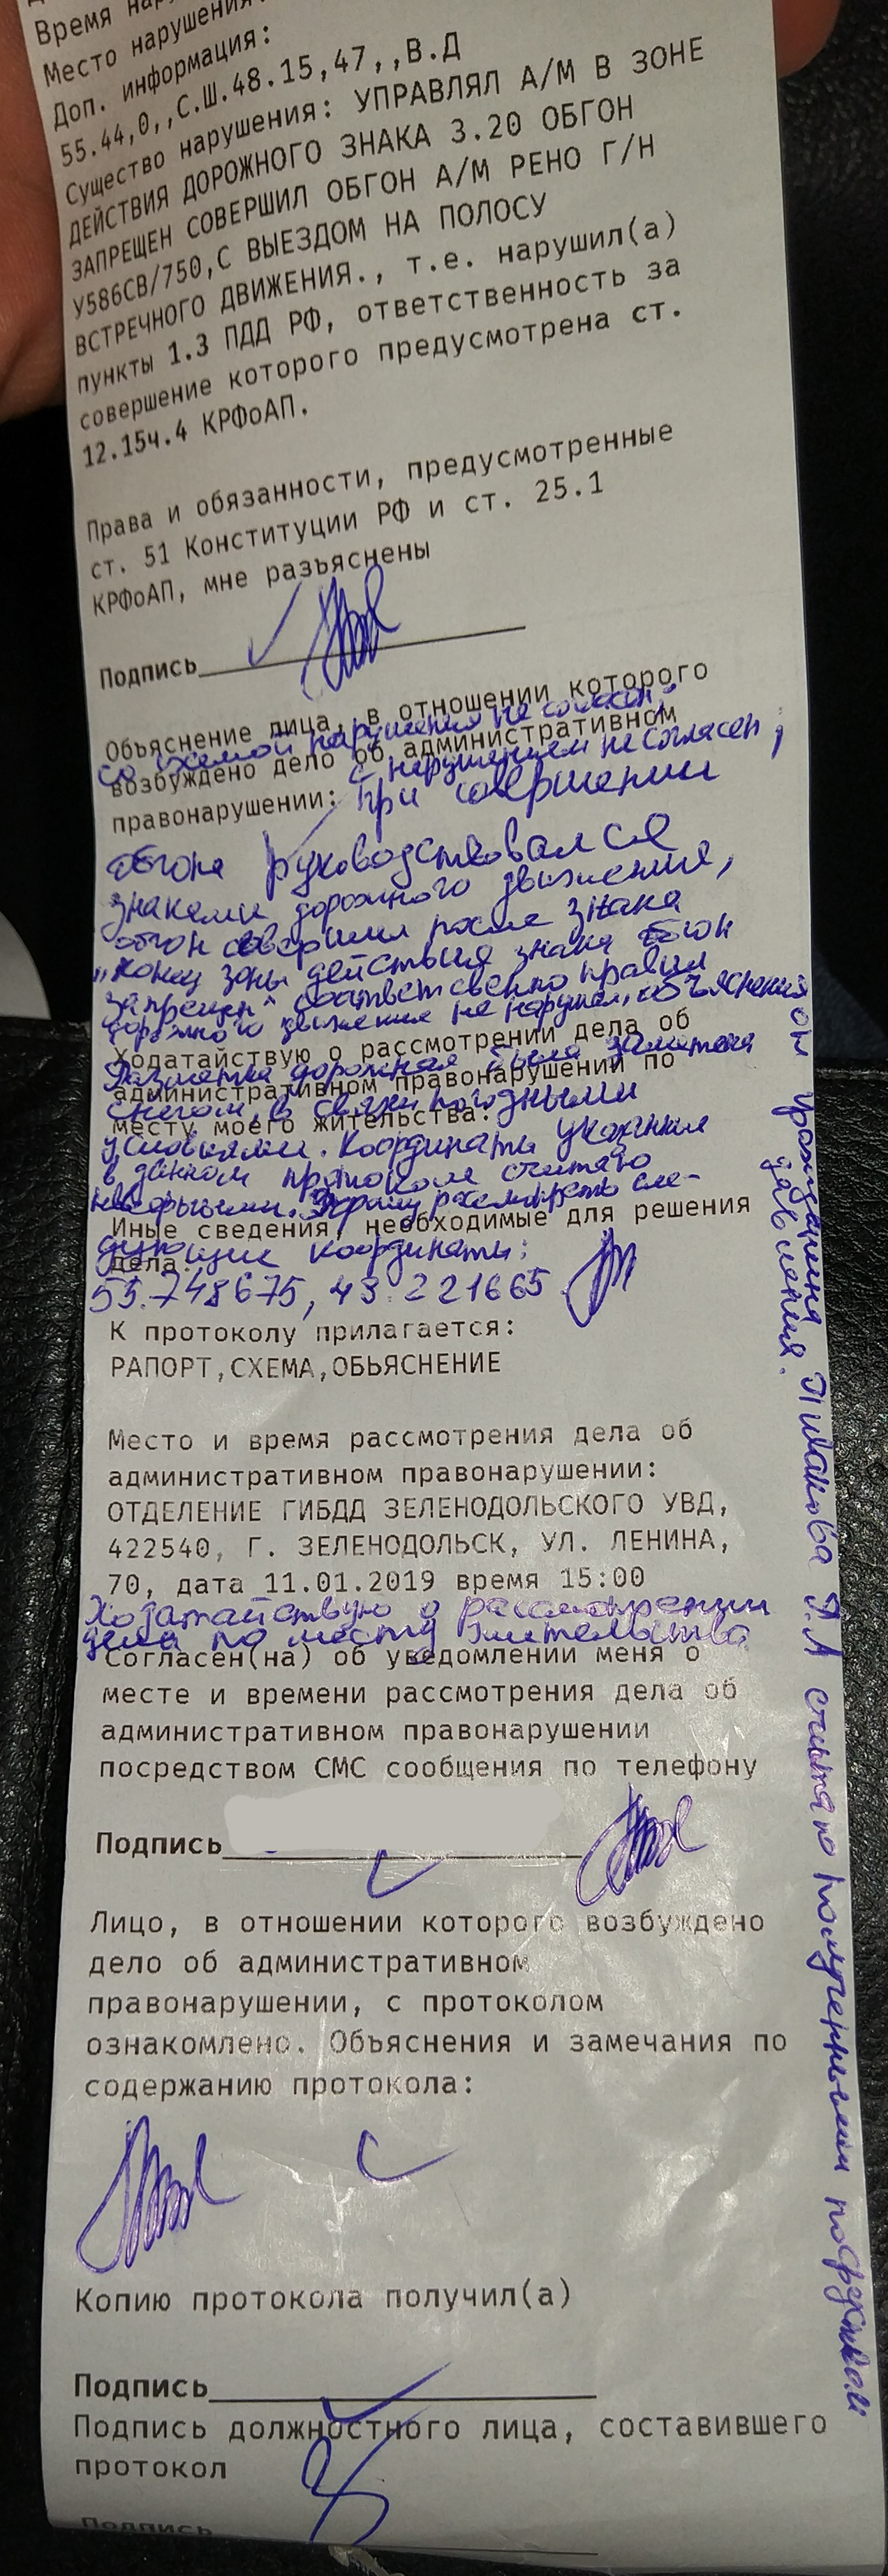 Время
Место нарушения:
Доп. информация:
55.44,0,,С.Ш.48.15,47,,В.Д
Существо нарушения: УПРАВЛЯЛ А/М В ЗОНЕ
ДЕЙСТВИЯ ДОРОЖНОГО ЗНАКА 3.20 ОБГОН
ЗАПРЕЩЕН СОВЕРШИЛ ОБГОН А/М РЕНО Г/Н
У586СВ/750,С ВЫЕЗДОМ НА ПОЛОСУ
ВСТРЕЧНОГО ДВИЖЕНИЯ., т.е. нарушил(а)
пункты 1.3 ПДД РФ, ответственность за
совершение которого предусмотрена ст.
12.15ч.4 КРФоАП.
Права и обязанности, предусмотренные
ст. 51 Конституции РФ и ст. 25.1
КРФоАП, мне разъяснены
Подпись
Объяснение лица, в отношении которого
со схемой нарушения не согласен.
возбуждено дело об административном
с нарушением не согласен,
правонарушении: При совершении
обгона руководствовался
знаками дорожного движения,
обгон совершил после знака
"конец зоны действия знака обгон
запрещен" соответственно правил
дорожного движения не нарушал, объяснения
Ходатайствую о рассмотрении дела об
Разметка дорожная была заметена
административном правонарушении по
снегом, в связи погодными
месту моего жительства:
условиями. Координаты указанные
в данном протоколе считаю
неверными. Прошу рассмотреть сле-
Иные сведения, необходимые для решения
дующие координаты:
дела:
55.748675, 48.221665
К протоколу прилагается:
РАПОРТ,СХЕМА,ОБЬЯСНЕНИЕ
Место и время рассмотрения дела об
административном правонарушении:
ОТДЕЛЕНИЕ ГИБДД ЗЕЛЕНОДОЛЬСКОГО УВД,
422540, Г. ЗЕЛЕНОДОЛЬСК, УЛ. ЛЕНИНА,
70, дата 11.01.2019 время 15:00
Ходатайствую о рассмотрении
дела по месту жительства
Согласен(на) об уведомлении меня о
месте и времени рассмотрения дела об
административном правонарушении
посредством СМС сообщения по телефону
Подпись
Лицо, в отношении которого возбуждено
дело об административном
правонарушении, с протоколом
ознакомлено. Объяснения и замечания по
содержанию протокола:
Копию протокола получил(а)
Подпись
Подпись должностного лица, составившего
протокол
Подпись
от гражданина считаю полученными посредством
давления.